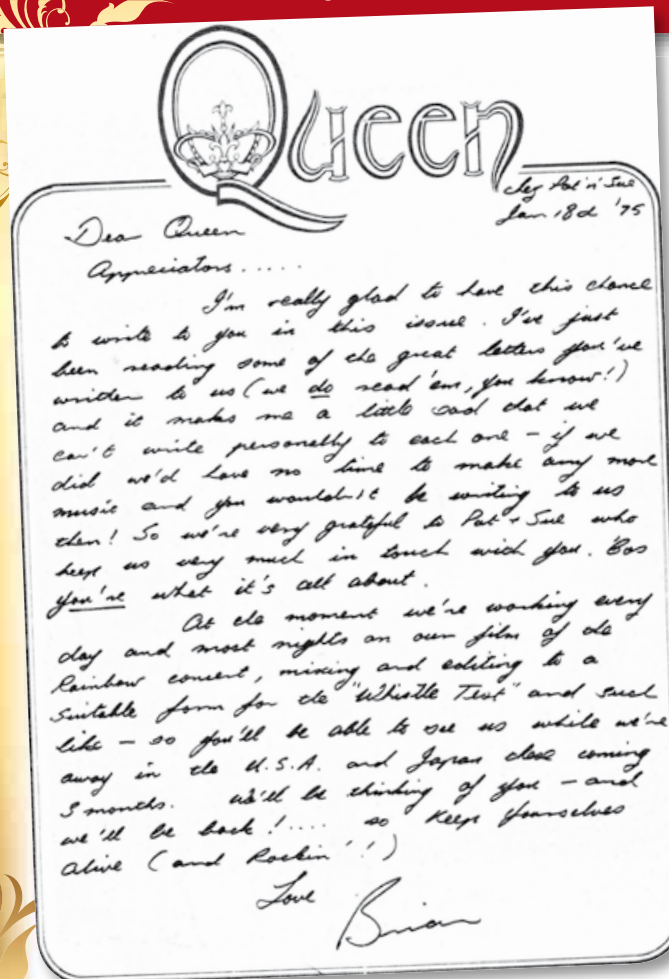 Queen
Pat 'n' Sue
Jan 18th '75
Dear Queen
Appreciators.....
I'm really glad to have this chance
to write to you in this issue. I've just
been reading some of the great letters you've
written to us (we do read 'em, you know!)
and it makes me a little sad that we
can't write personally to each one – if we
did we'd have no time to make any more
music and you wouldn't be writing to us
then! So we're very grateful to Pat + Sue who
keep us very much in touch with you. 'Cos
you're what it's all about.
At the moment we're working every
day and most nights on our film of the
Rainbow concert, mixing and editing to a
suitable form for the "Whistle Test" and such
like – so you'll be able to see us while we're
away in the U.S.A. and Japan these coming
3 months. We'll be thinking of you – and
we'll be back!.... so Keep Yourselves
Alive (and Rockin'!)
Love
Brian